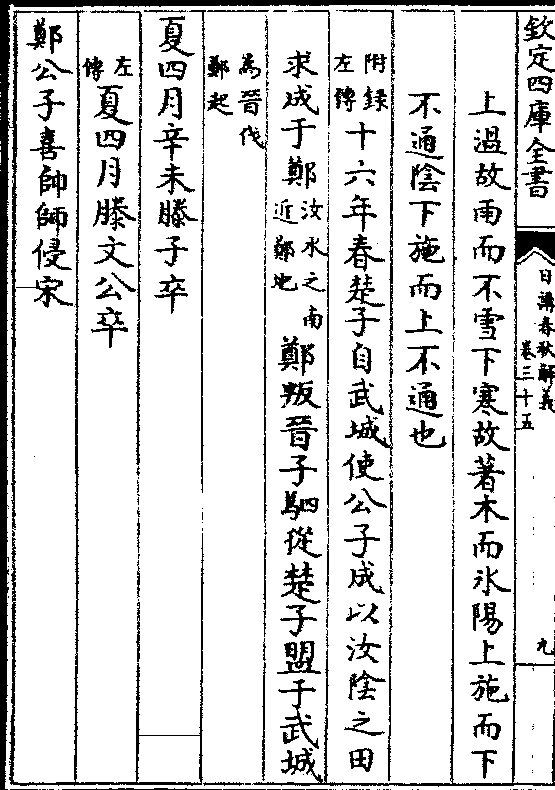 欽定四庫全書
日講春秋解義
卷三十五
九
上溫故雨而不雪下寒故著木而氷陽上施而下
不通陰下施而上不通也
附録
左傳
十六年春楚子自武城使公子成以汝陰之田
求成于鄭
汝水之南
近鄭地
鄭叛晉子駟從楚子盟于武城
為晉伐
鄭起
夏四月辛未滕子卒
左
傳
夏四月滕文公卒
鄭公子喜帥師侵宋